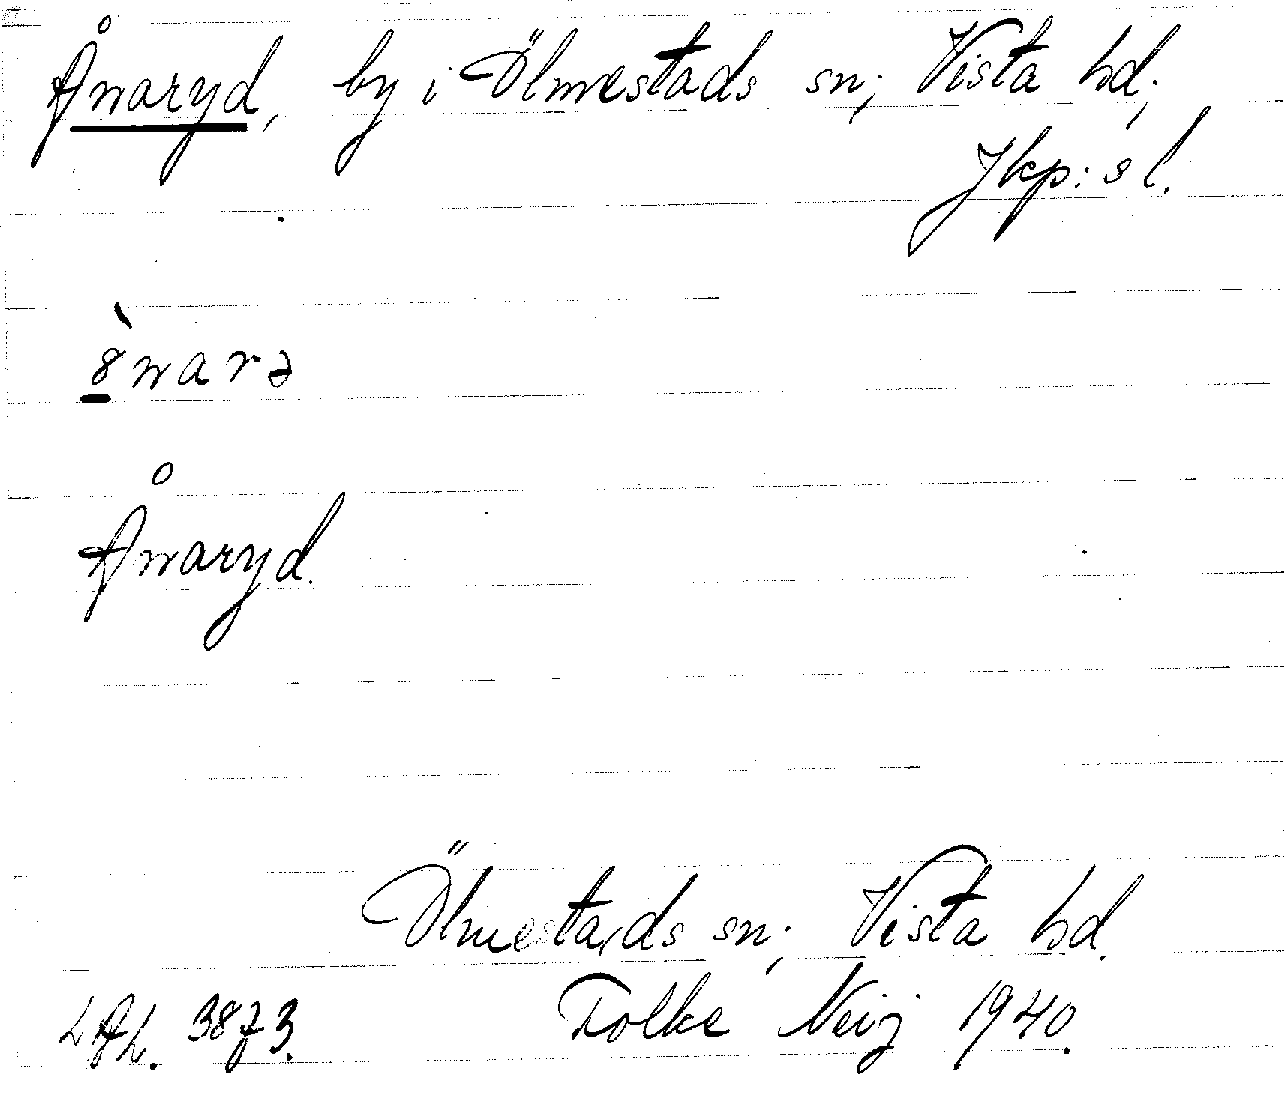 Ånaryd, by i Ölmestads sn; Vista hd;
Jkp: s l.
8̱̀narə
Ånaryd.
Ölmestads sn; Vista hd.
LAL. 3873. Folke Neij 1940.